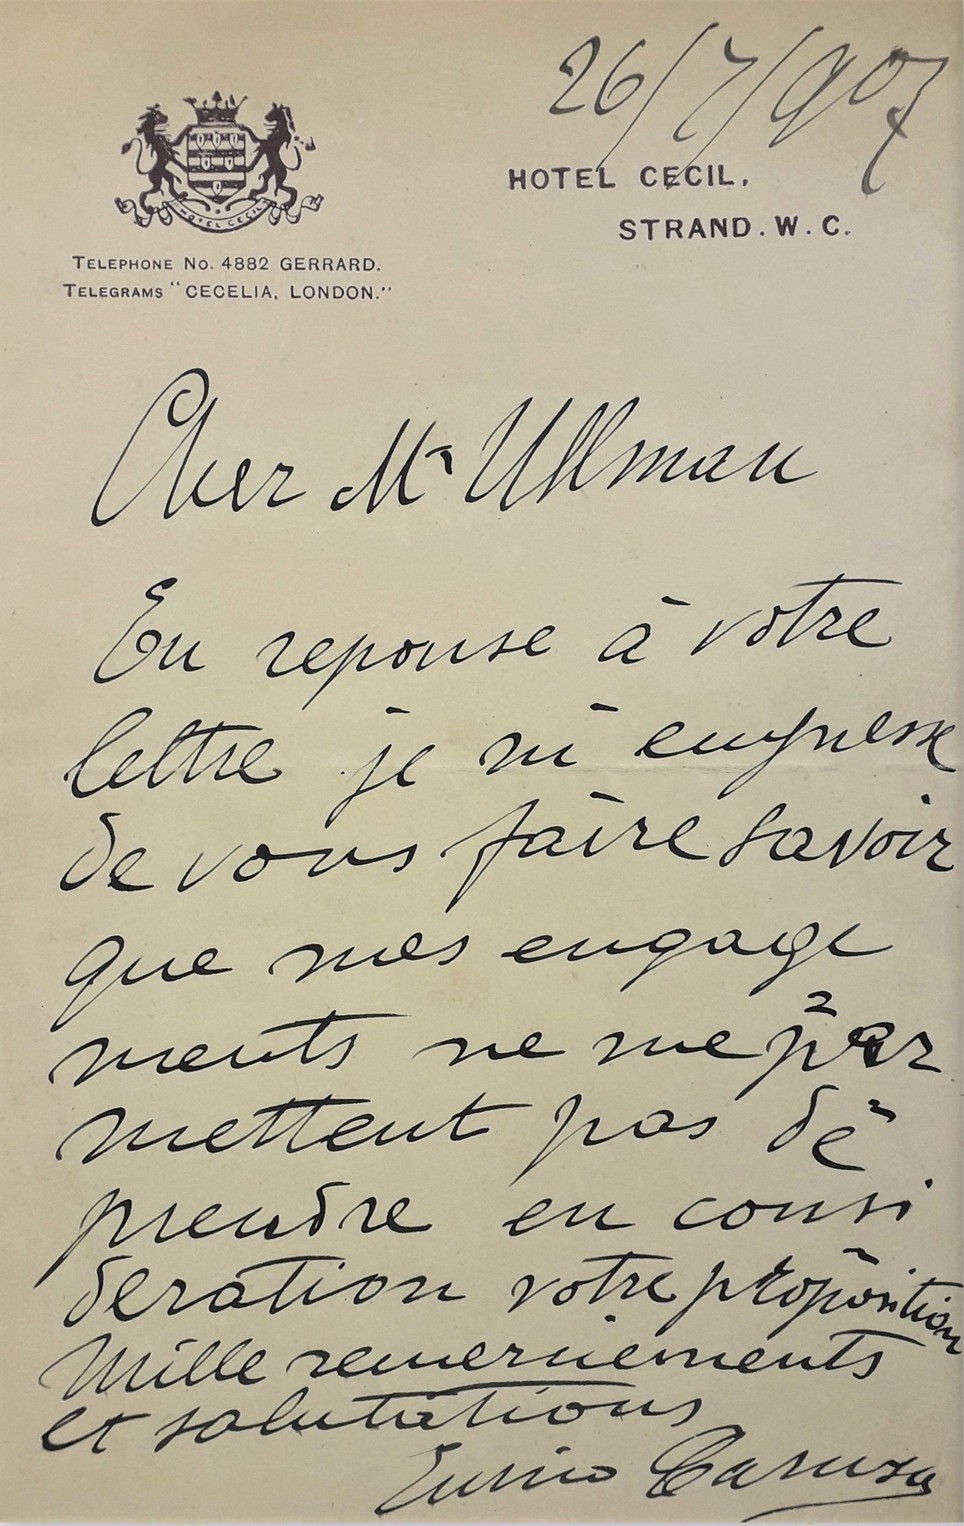 26/7/907
HOTEL CECIL
HOTEL CECIL,
STRAND. W. C.
TELEPHONE No. 4882 GERRARD.
TELEGRAMS "CECELIA, LONDON."
Cher Mr Ullman
En reponse à votre
lettre je m'empresse
de vous faire savoir
que mes engage
ments ne me per
mettent pas de
prendre en consi
deration votre proposition
Mille remerciements
et salutations
Enrico Caruso